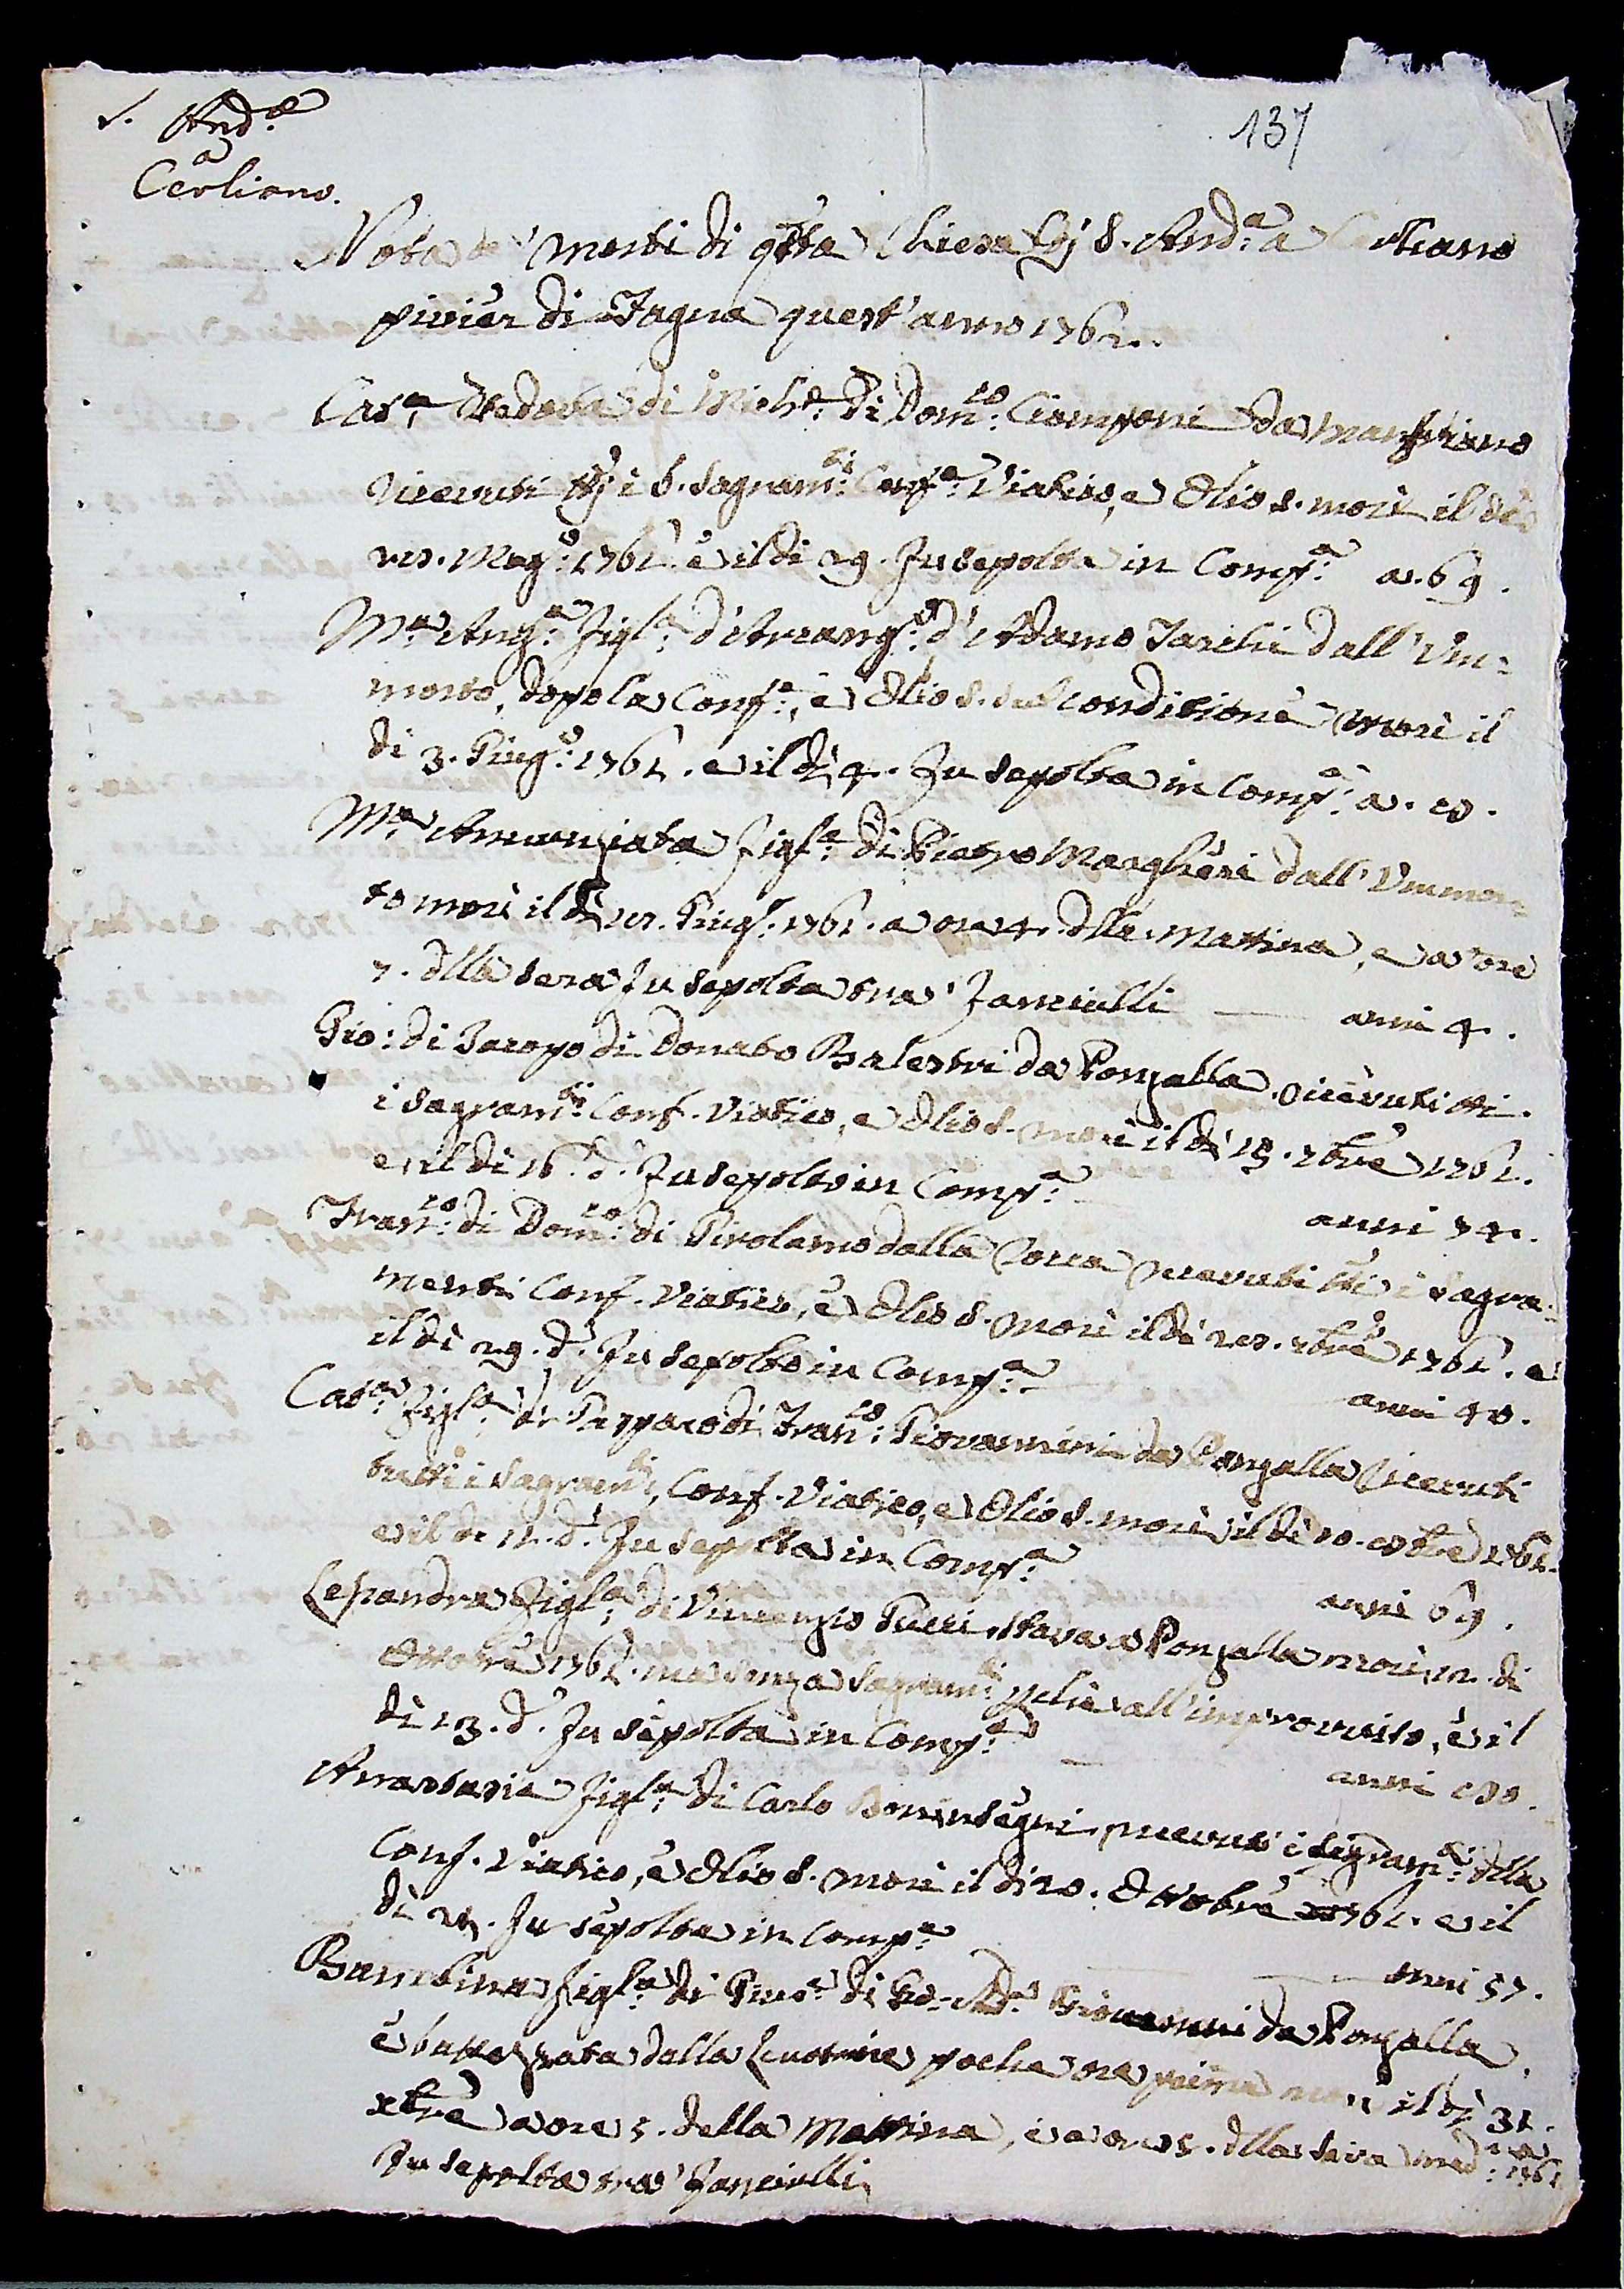 S. And.ª
a
Cerliano.
137
Nota de' morti di q.sta Chiesa di S. And.ª a Cerliano
pivier di Fagna quest'anno 1762.
Cat.ª Vedova di Mich.e di Dom.co Ciamponi da
ricevuti tti i S. Sagram.ti Conf.e Viatico, e Olio S. morì il dì
Mag.o 1762. e il dì 29. fu sepolta in Comp.ª a. 69.
M.ª Ang.ª figl.ª d'Arcang.o d'Adamo dall' Um=
morto, dopo la Conf.e, e Olio S. sub conditione morì il
di 3. Giug.o 1762. e il dì 4. fu sepolta in Comp.ª a.
M.ª Annunziata figl.ª di Pietro Margheri dall' Ummor=
to morì il dì Giug.o 1762. a ore 4. dlla Mattina, e a ore
7. dlla sera fu sepolta tra' fanciulli — anni 4.
Gio: di Jacopo di Donato Balestri da Ponzalla ricevuti tti.
i Sagram.ti Conf. Viatico, e Olio S. morì il dì 15. 7bre 1762.
e il di 16. d.o fu sepolto in Comp.ª
anni
Fran.co di Dom.co di Girolamo dalla ricevuti tti i Sagra=
menti Conf. Viatico, e Olio S. morì il dì 7bre 1762. e
il dì 29. d.o fu sepolto in Comp.ª
anni 40.
Cat.ª figl.ª di Gasparo di Fran.co Giovannini da Ponzalla ricevuti
tutti i Sagram.ti, Conf. Viatico, e Olio S. morì il dì 1762.
e il dì d.o fu sepolta in Comp.ª
anni 69.
Lessandra figl.ª di Vincenzio Pucci stava a Ponzalla morì 12. di
Ottobre 1762. ma senza Sagram.ti pche all'improvviso, e il
dì 13. d.o fu sepolta in Comp.ª —
anni
Anastasia figl.ª di Carlo Boninsegni ricevuti i Sagram.ti dlla
Conf. Viatico, e Olio S. morì il dì 20. Ottobre 1762. e il
dì 21. fu sepolta in Comp.ª
anni 57.
Bambina figl.ª di Gius.e di Giovannini da Ponzalla
e battezzata dalla Levatrice poche ore prima morì il dì 31.
xbre a ore 5. della Mattina, e a ore 5. dlla sera med.ª 1762
fu sepolta tra' fanciulli